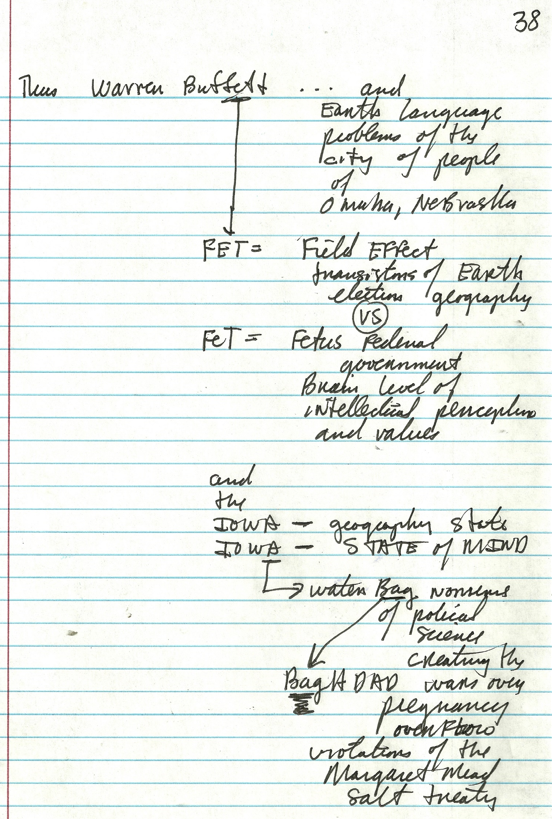 38
Thus Warren Buffett ... and
Earth language
problems of the
city of people
of
Omaha, NeBraska
FET = Field EFFect
transistors of Earth
election geography
VS
FeT = Fetus Federal
government
Brain level of
intellectual perception
and values
and
the
IOWA - geography state
IOWA - STATE of MIND
water Bag nonsense
of political
science
creating the
BagHDAD wars over
pregnancy
overFlow
violations of the
Margaret Mead
Salt treaty